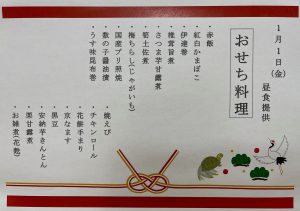 1月1日(金)
昼食提供
おせち料理
・赤飯
・紅白かまぼこ
・伊達巻
・椎茸旨煮
・さつま芋甘露煮
・筍土佐煮
・梅ちらし(じゃがいも)
・国産ブリ照焼
・数の子醤油漬
・うす味昆布巻
・焼えび
・チキンロール
・花餅手まり
・京なます
・黒豆
・安納芋きんとん
・栗甘露煮
・お雑煮(花麩)